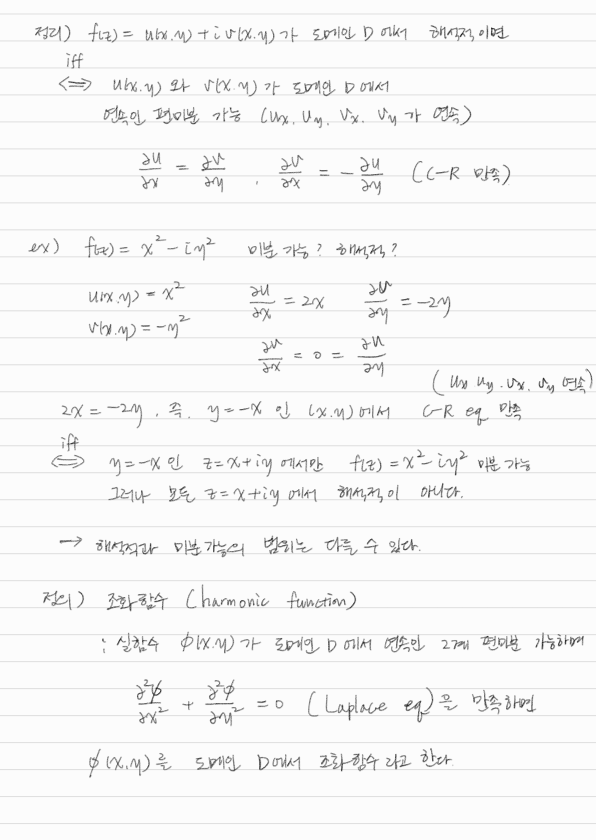 정리) f(z) = u(x.y) + i v(x.y)가 도메인 D에서 해석적이면
iff
⟺ u(x.y) 와 v(x.y) 가 도메인 D에서
연속인 편미분 가능 (ux. uy. vx. vy 가 연속)
∂u/∂x = ∂v/∂y , ∂v/∂x = - ∂u/∂y (C-R 만족)
ex) f(z) = x² - iy² 미분가능? 해석적?
u(x.y) = x² ∂u/∂x = 2x ∂v/∂y = -2y
v(x.y) = -y²
∂v/∂x = 0 = ∂u/∂y
(ux uy . vx. vy 연속)
2x = -2y . 즉. y = -x 인 (x.y)에서 C-R eq 만족
iff
⟺ y = -x 인 z = x + iy 에서만 f(z) = x² - iy² 미분가능
그러나 모든 z = x + iy 에서 해석적이 아니다.
→ 해석적과 미분가능의 범위는 다를 수 있다.
정의) 조화함수 (harmonic function)
: 실함수 ϕ(x.y)가 도메인 D에서 연속인 2계 편미분 가능하며
∂²ϕ/∂x² + ∂²ϕ/∂y² = 0 (Laplace eq)을 만족하면
ϕ(x.y)를 도메인 D에서 조화함수라고 한다.